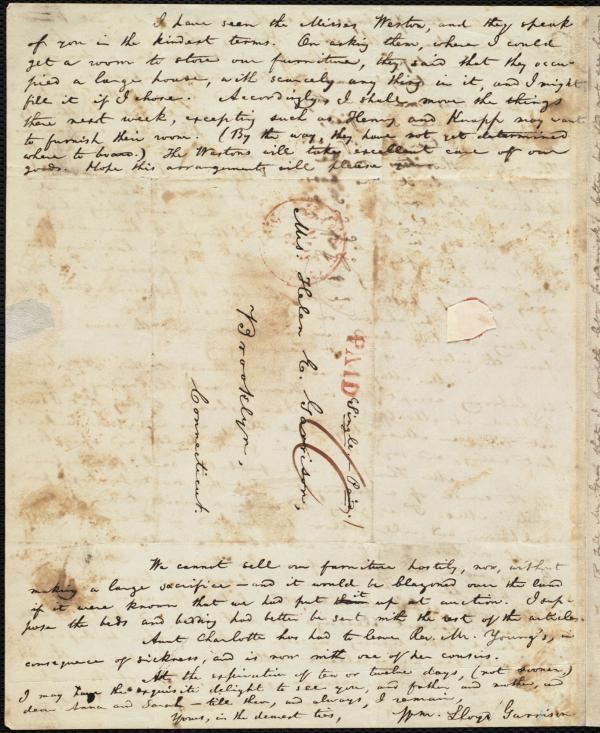 I have seen the Misses Weston, and they speak
of you in the kindest terms. On asking them, where I could
get a room to store our furniture, they said that they occu-
pied a large house, with scarcely any thing in it, and I might
fill it if I chose. Accordingly, I shall move the things
there next week, excepting such as Henry and Knapp may want
to furnish their room. (By the way, they have not yet determined
where to board.) The Westons will take excellent care of our
goods. Hope this arrangement will please you.
PAID
Single / Paid.
6
Mrs. Helen E. Garrison,
Brooklyn,
Connecticut.
We cannot sell our furniture hastily, now, without
making a large sacrifice — and it would be blazoned over the land
if it were known that we had put it up at auction. I sup-
pose the beds and bedding had better be sent with the rest of the articles.
Aunt Charlotte has had to leave Rev. Mr. Young's, in
consequence of sickness, and is now with one of her cousins.
At the expiration of ten or twelve days, (not sooner,)
I may have the exquisite delight to see you, and father and mother, and
dear Anna and Sarah — till then, and always, I remain,
Yours, in the dearest ties,
Wm. Lloyd Garrison